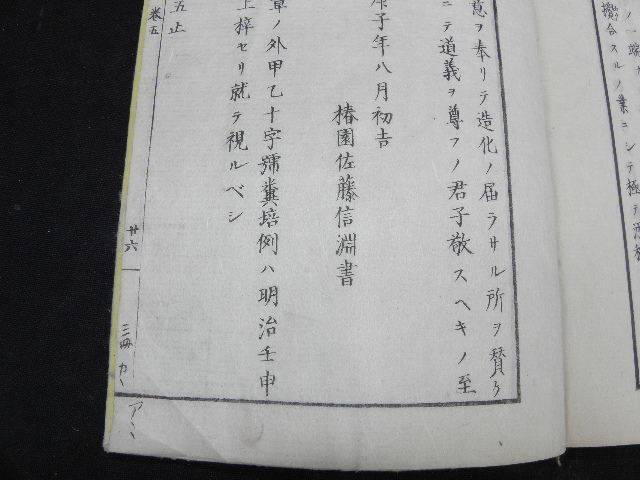 ノ一端
攪合スルノ業ニシテ極テ
意ヲ奉リテ造化ノ届ラサル所ヲ賛ケ
ニテ道義ヲ尊フノ君子敬スヘキノ至
子年八月初吉
椿園佐藤信淵書
章ノ外甲乙十字號糞培例ハ明治壬申
上梓セリ就テ視ルベシ
五止
卷五
廿六